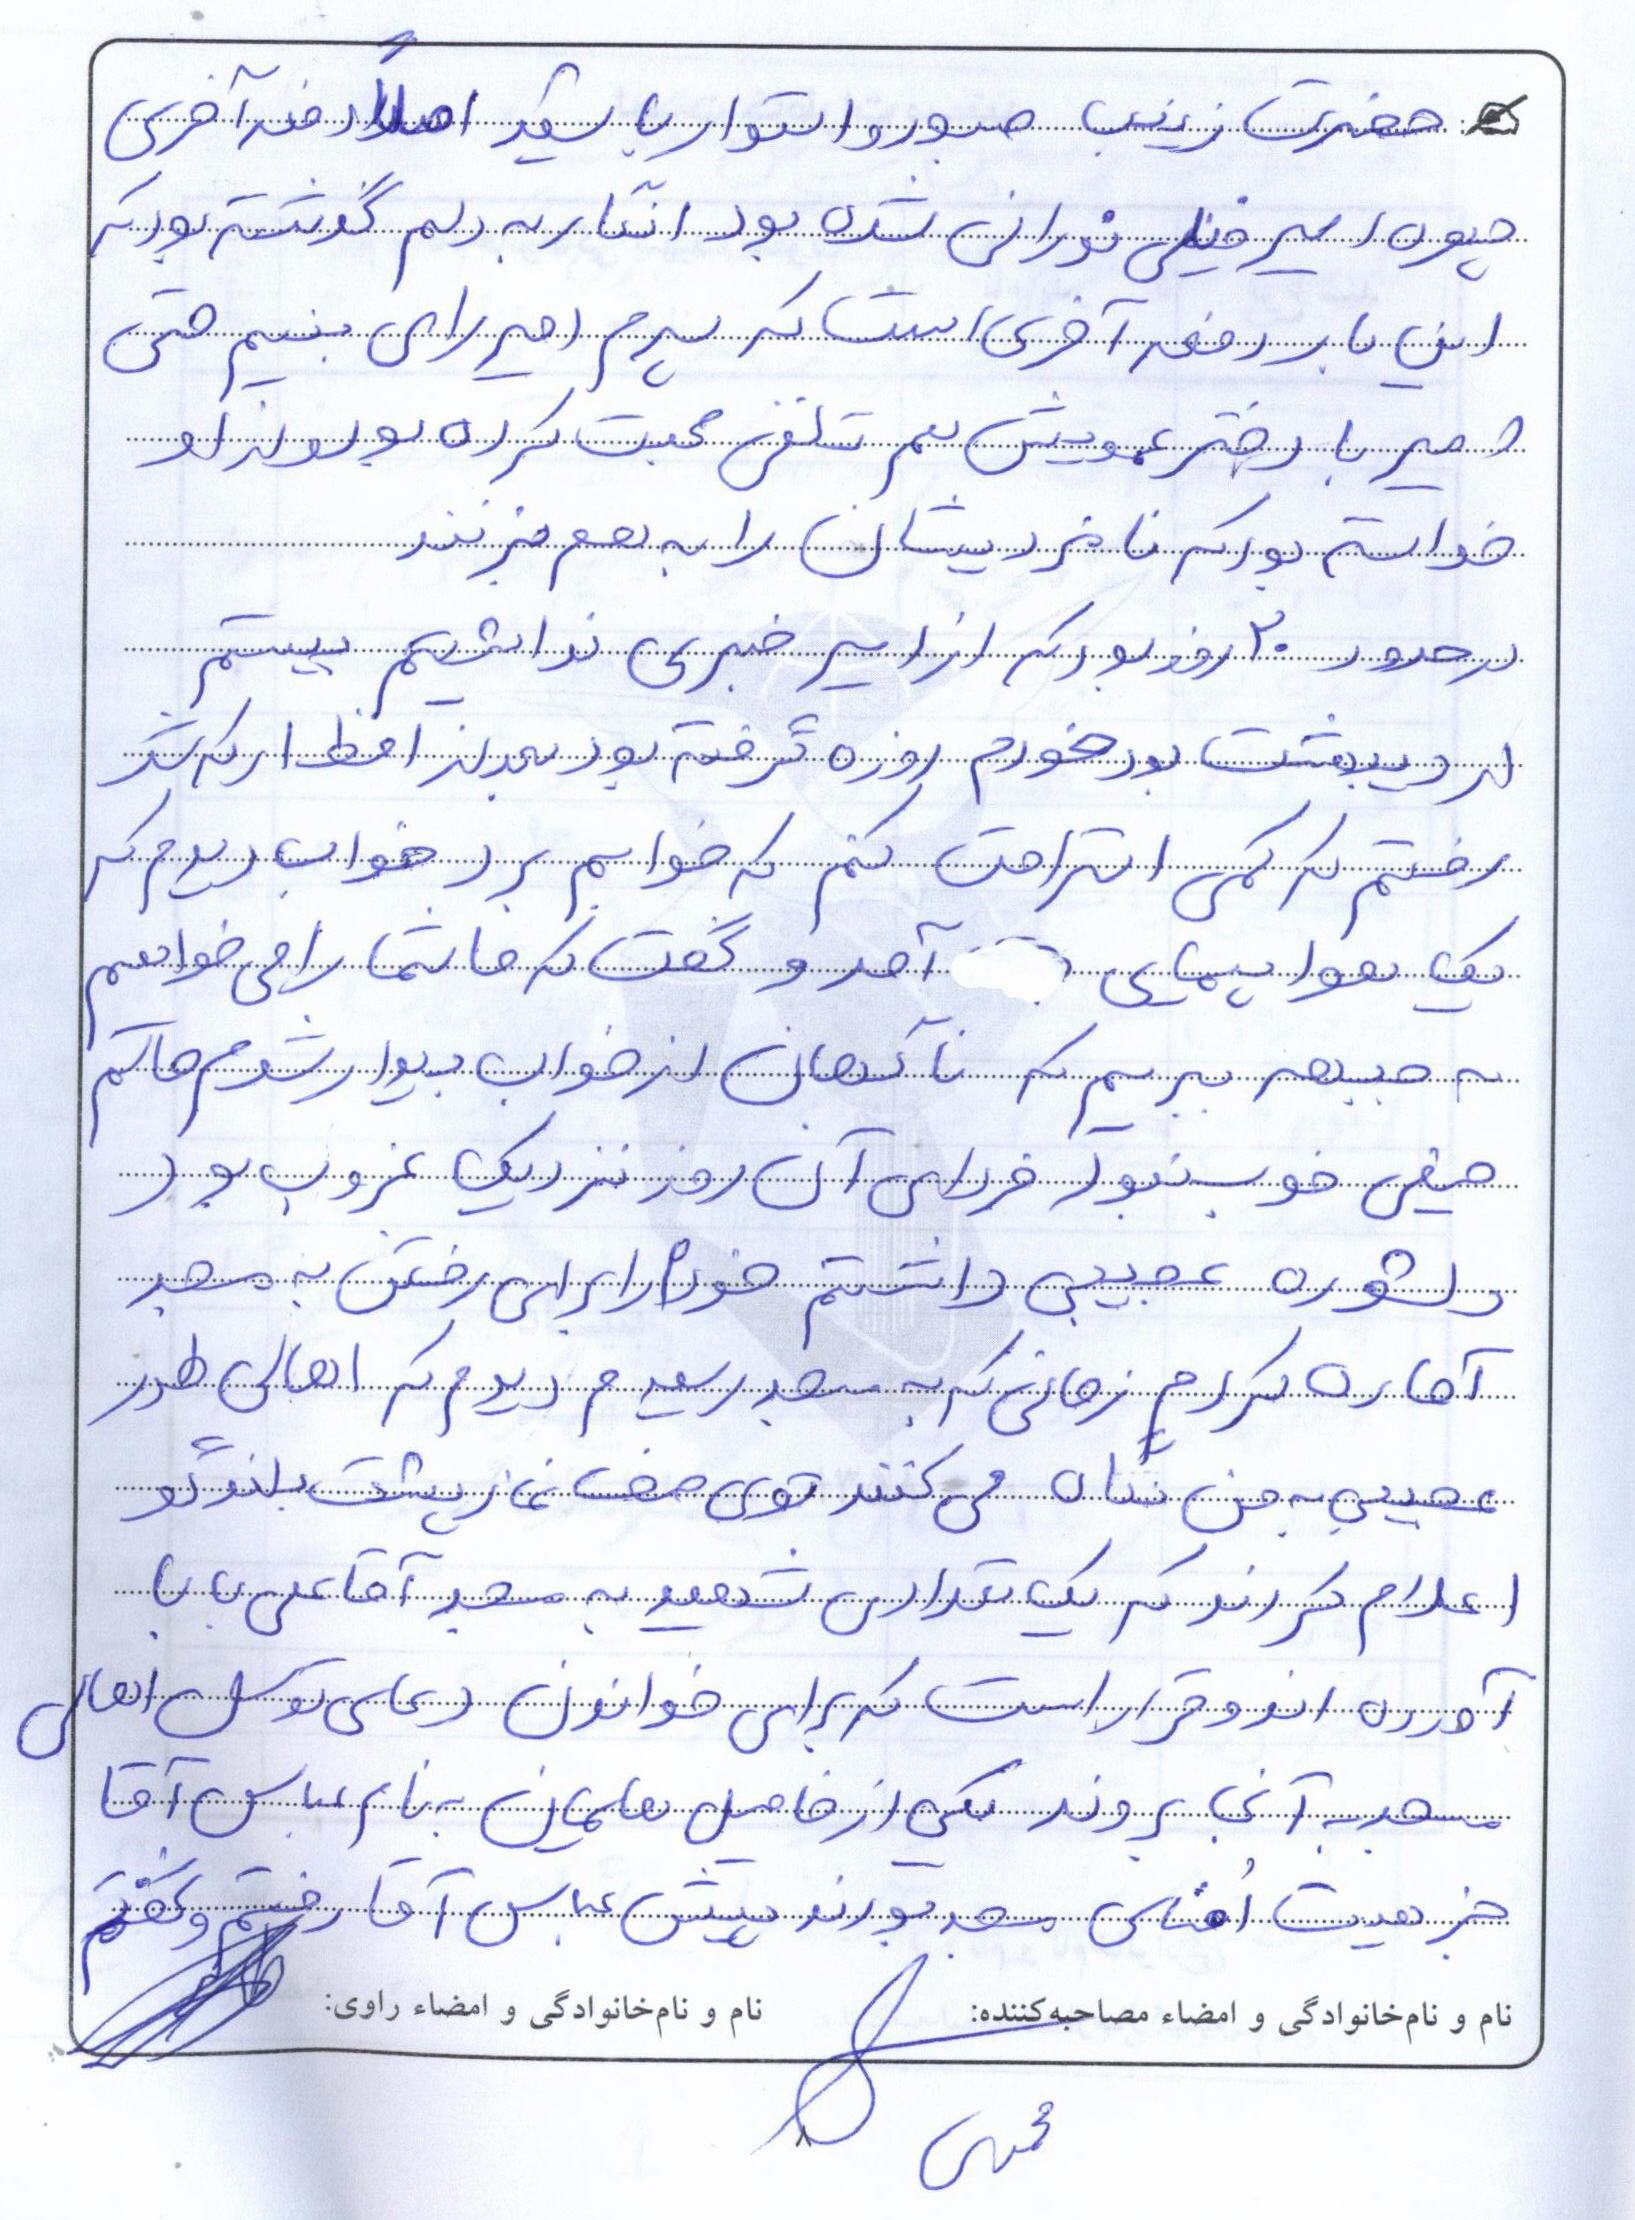 حضرت زینب صبور و استوار باشید اصلاً دفعه آخری
چهره امیر خیلی نورانی شده بود انگار به دلم گذشته بود که
این بار دفعه آخری است که پسرم امیر را می بینم حتی
امیر با دختر عمویش هم تلفنی صحبت کرده بود و از او
خواسته بود که نامزدیشان را به هم بزنند
در حدود ۲۰ روز بود که از امیر خبری نداشتیم بیستم
اردیبهشت بود خودم روزه گرفته بودم بعد از افطار که شد
رفتم که کمی استراحت کنم که خوابم برد خواب دیدم که
یک هواپیمایی آمد و گفت که ما شما را می خواهیم
به جبهه ببریم که ناگهان از خواب بیدار شدم حالم
خیلی خوب نبود فردای آن روز نزدیک غروب بود
دلشوره عجیبی داشتم خودم را برای رفتن به مسجد
آماده کردم زمانی که به مسجد رسیدم دیدم که اهالی طور
عجیبی به من نگاه می کنند توی صف نماز پشت بلندگو
اعلام کردند که یک تعدادی شهید به مسجد آقا علی بابا
آورده اند و قرار است که برای خواندن دعای توسل اهالی
مسجد به آنجا بروند یکی از فامیل هایمان به نام عباس آقا
جز هیئت اُمنای مسجد بودند پیش عباس آقا رفتم و گفتم
نام و نام‌خانوادگی و امضاء مصاحبه‌کننده: نام و نام‌خانوادگی و امضاء راوی: